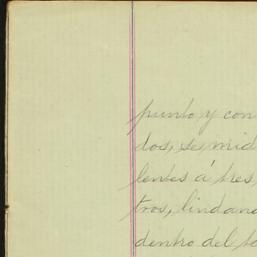 punto y con
dos, se mid
lentes á tres
tros, lindand
dentro del ta